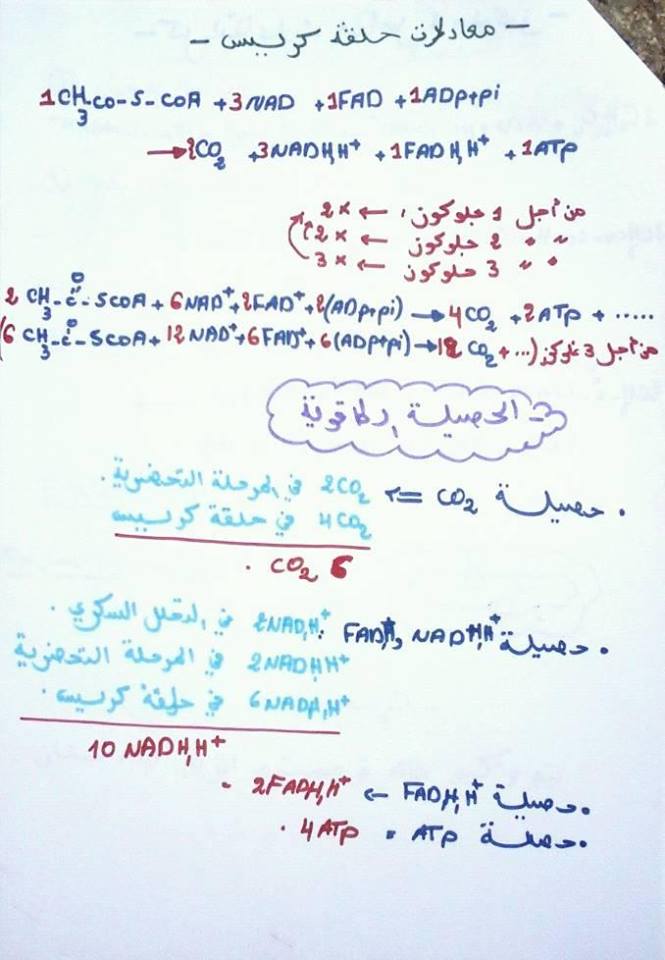 - معادلات حلقة كريبس -
1CH3CO-S-COA + 3NAD + 1FAD + 1ADP+Pi
→ 2CO2 + 3NADH,H+ + 1FADH,H+ + 1ATP
من أجل 1 جلوكوز، ← × 2
" " 2 جلوكوز ← × 2
" " 3 جلوكوز ← × 3
2 CH3-C-SCOA + 6NAD+ + 2FAD+ + 2(ADP+Pi) → 4CO2 + 2ATP + .....
O
(6 CH3-C-SCOA + 12NAD+ + 6FAD+ + 6(ADP+Pi) → 12 CO2 + ...) من أجل 3 غلوكوز
O
الحصيلة الطاقوية
. حصيلة CO2 => 2CO2 في المرحلة التحضيرية.
4CO2 في حلقة كريبس
6 CO2 .
. حصيلة FADH, NADH,H+ : 2NADH,H+ في التحلل السكري.
2NADH,H+ في المرحلة التحضيرية
6NADH,H+ في حلقة كريبس.
10 NADH,H+
. حصيلة FADH,H+ ← 2FADH,H+ .
. حصيلة ATP = 4ATP .